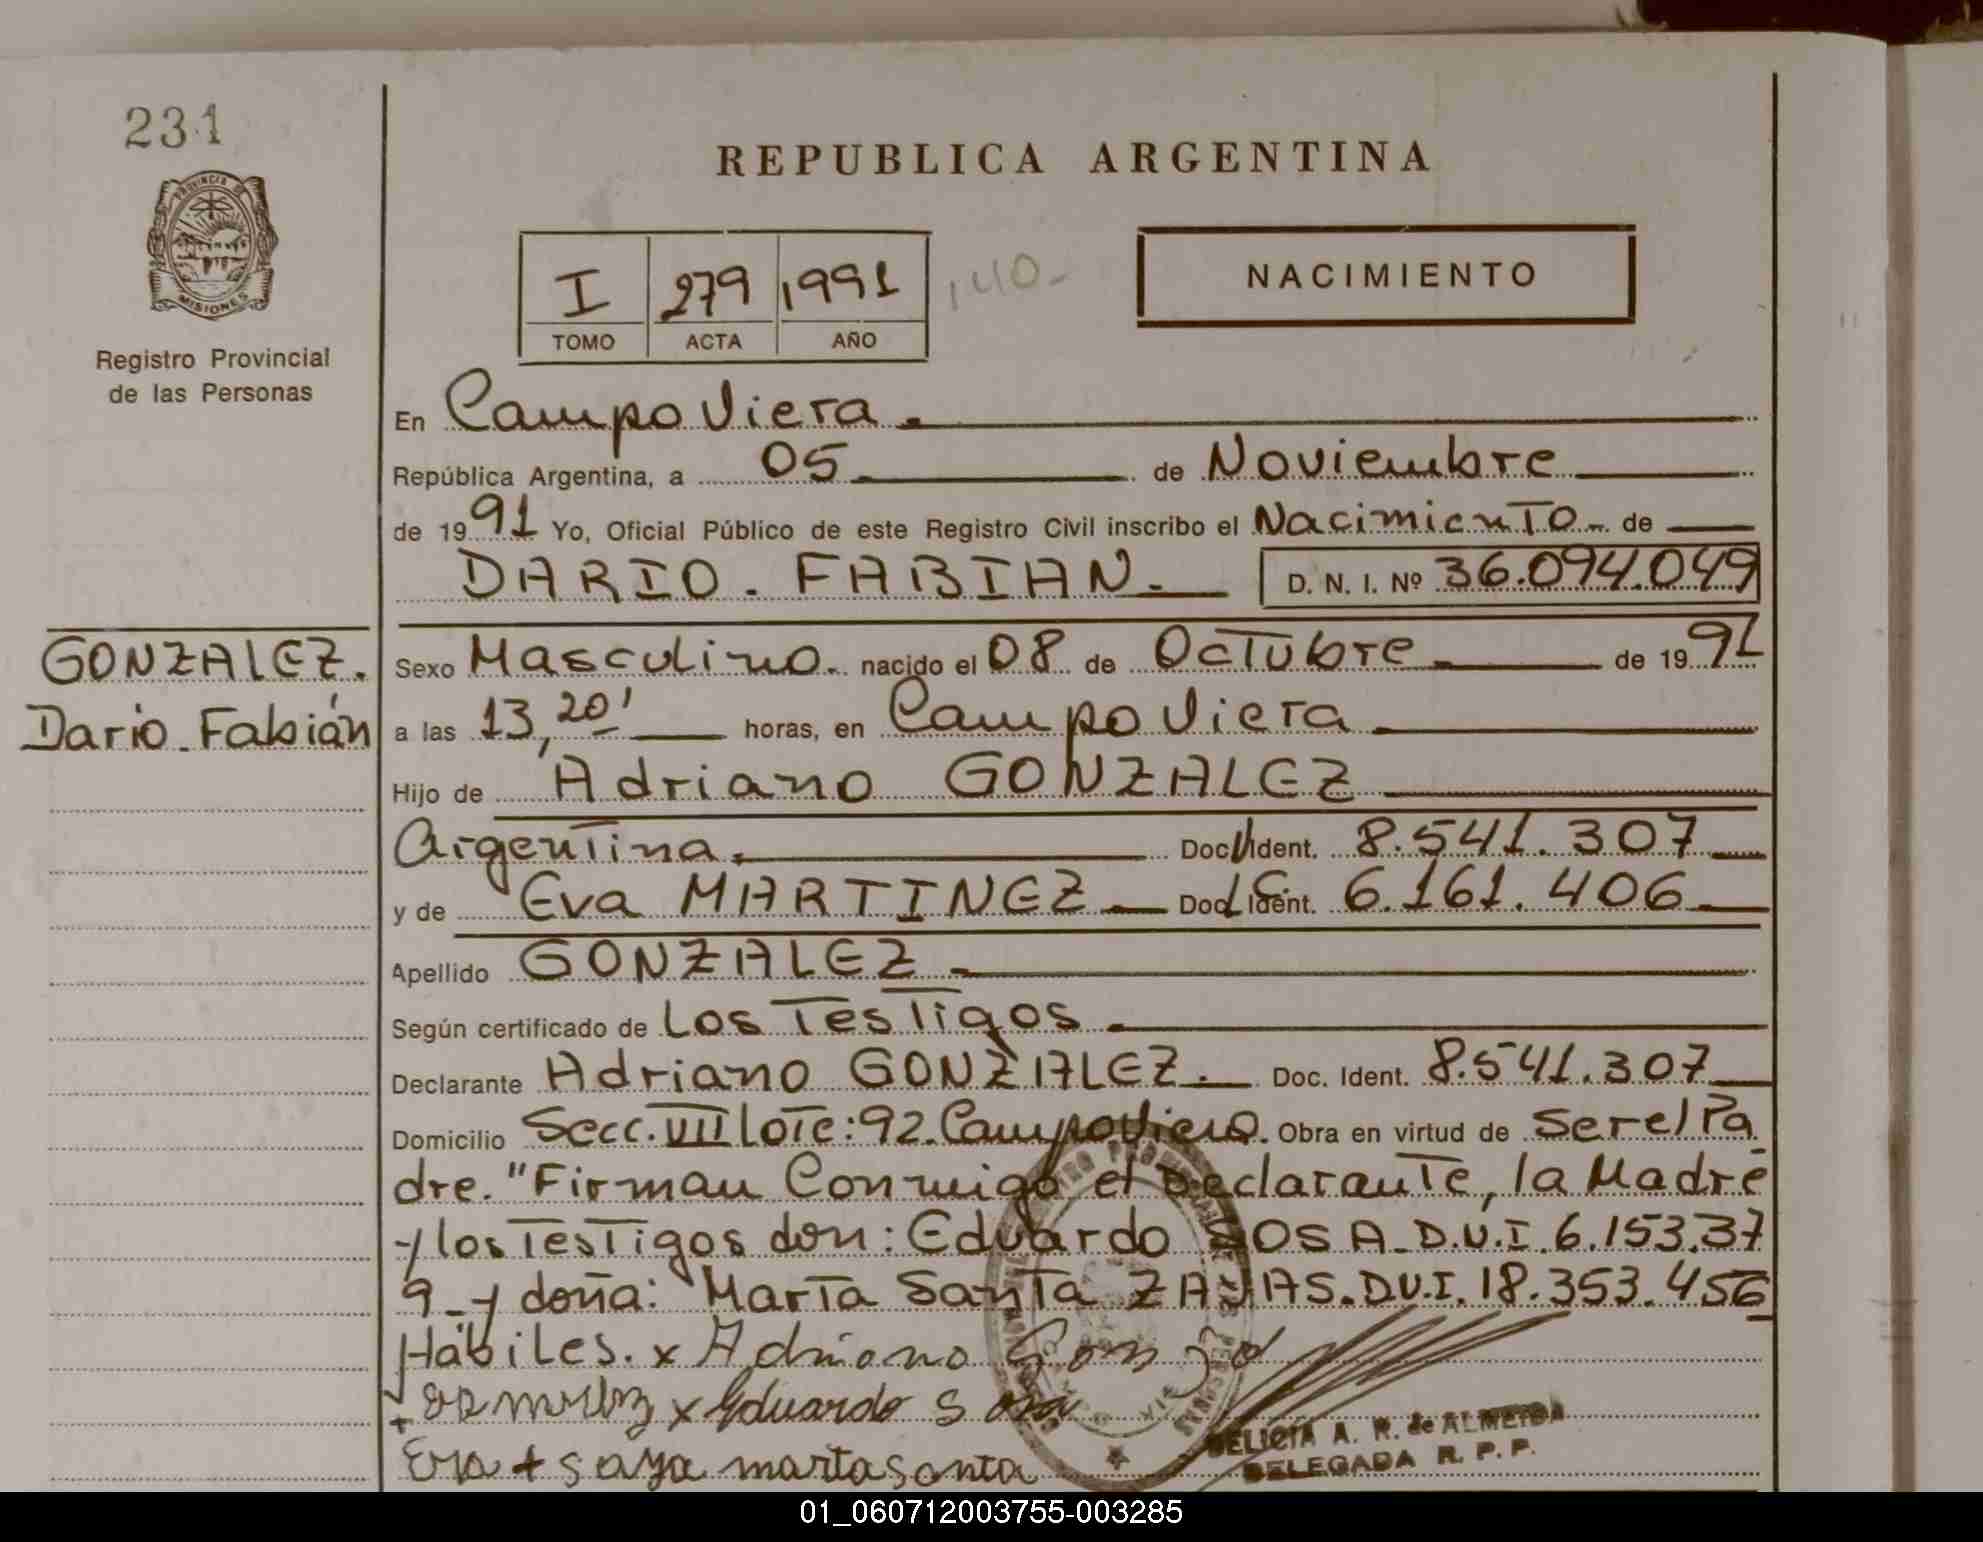 231
PROVINCIA DE
MISIONES
Registro Provincial
de las Personas
GONZALEZ.
Dario. Fabián
REPUBLICA ARGENTINA
I 279 1991 140-
TOMO ACTA AÑO
NACIMIENTO
En Campo Viera.
República Argentina, a 05 de Noviembre
de 1991 Yo, Oficial Público de este Registro Civil inscribo el Nacimiento- de
DARIO. FABIAN.- D. N. I. Nº 36.094.049
Sexo Masculino. nacido el 08 de Octubre de 1991
a las 13,20' horas, en Campo Viera
Hijo de Adriano GONZALEZ
Argentina. Doc. Ident. 8.541.307
y de Eva MARTINEZ Doc. Ident. 6.161.406
Apellido GONZALEZ
Según certificado de Los Testigos
Declarante Adriano GONZALEZ. Doc. Ident. 8.541.307
Domicilio Secc. VII lote: 92. Campo Viera. Obra en virtud de Ser el Pa
dre. "Firman Conmigo el Declarante, la Madre
y los Testigos don: Eduardo SOSA. D.N.I. 6.153.37
9_y doña: Marta Santa ZAJAS. D.N.I. 18.353.456
Hábiles. x Adriano
x Eduardo Sosa
Eva + saya marta santa
DELICIA A. R. de ALMEIDA
DELEGADA R. P. P.
01_060712003755-003285